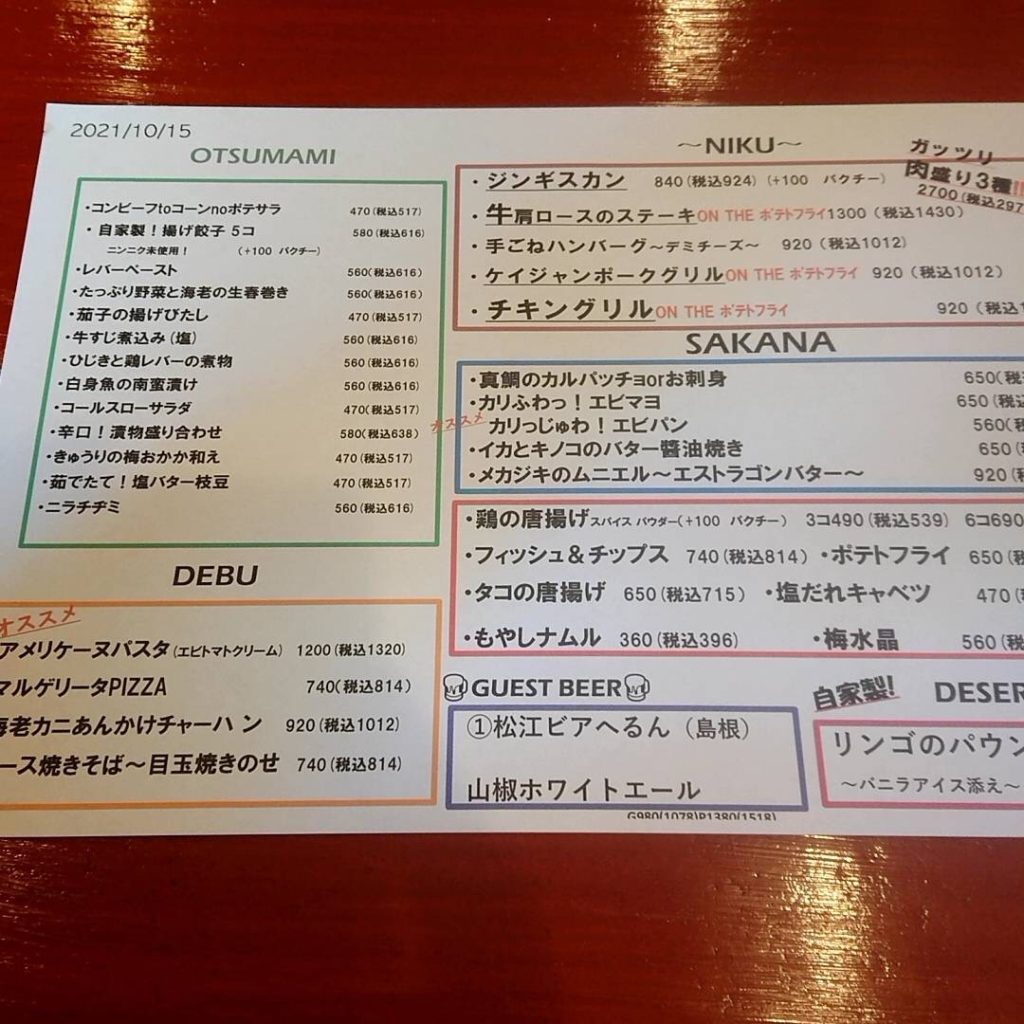 2021/10/15
OTSUMAMI
・コンビーフtoコーンnoポテサラ 470(税込517)
・自家製！揚げ餃子 5コ 580(税込616)
ニンニク未使用！ (+100 パクチー)
・レバーペースト 560(税込616)
・たっぷり野菜と海老の生春巻き 560(税込616)
・茄子の揚げびたし 470(税込517)
・牛すじ煮込み(塩) 560(税込616)
・ひじきと鶏レバーの煮物 560(税込616)
・白身魚の南蛮漬け 560(税込616)
・コールスローサラダ 470(税込517)
・辛口！漬物盛り合わせ 580(税込638)
・きゅうりの梅おかか和え 470(税込517)
・茹でたて！塩バター枝豆 470(税込517)
・ニラチヂミ 560(税込616)
DEBU
オススメ
アメリケーヌパスタ(エビトマトクリーム) 1200(税込1320)
マルゲリータPIZZA 740(税込814)
海老カニあんかけチャーハン 920(税込1012)
ース焼きそば～目玉焼きのせ 740(税込814)
～NIKU～
ガッツリ
肉盛り3種!!
2700(税込297
・ジンギスカン 840(税込924) (+100 パクチー)
・牛肩ロースのステーキON THE ポテトフライ1300(税込1430)
・手ごねハンバーグ～デミチーズ～ 920(税込1012)
・ケイジャンポークグリルON THE ポテトフライ 920(税込1012)
・チキングリルON THE ポテトフライ 920(税込1
SAKANA
・真鯛のカルパッチョorお刺身 650(税
・カリふわっ！エビマヨ 650(税込
オススメ カリっじゅわ！エビパン 560(税
・イカとキノコのバター醤油焼き 650(
・メカジキのムニエル～エストラゴンバター～ 920(税
・鶏の唐揚げスパイス パウダー(+100 パクチー) 3コ490(税込539) 6コ690
・フィッシュ＆チップス 740(税込814) ・ポテトフライ 650(税
・タコの唐揚げ 650(税込715) ・塩だれキャベツ 470(
・もやしナムル 360(税込396) ・梅水晶 560(税
GUEST BEER
①松江ビアへるん(島根)
山椒ホワイトエール
G980(1078)P1380(1518)
自家製! DESER
リンゴのパウン
～バニラアイス添え～